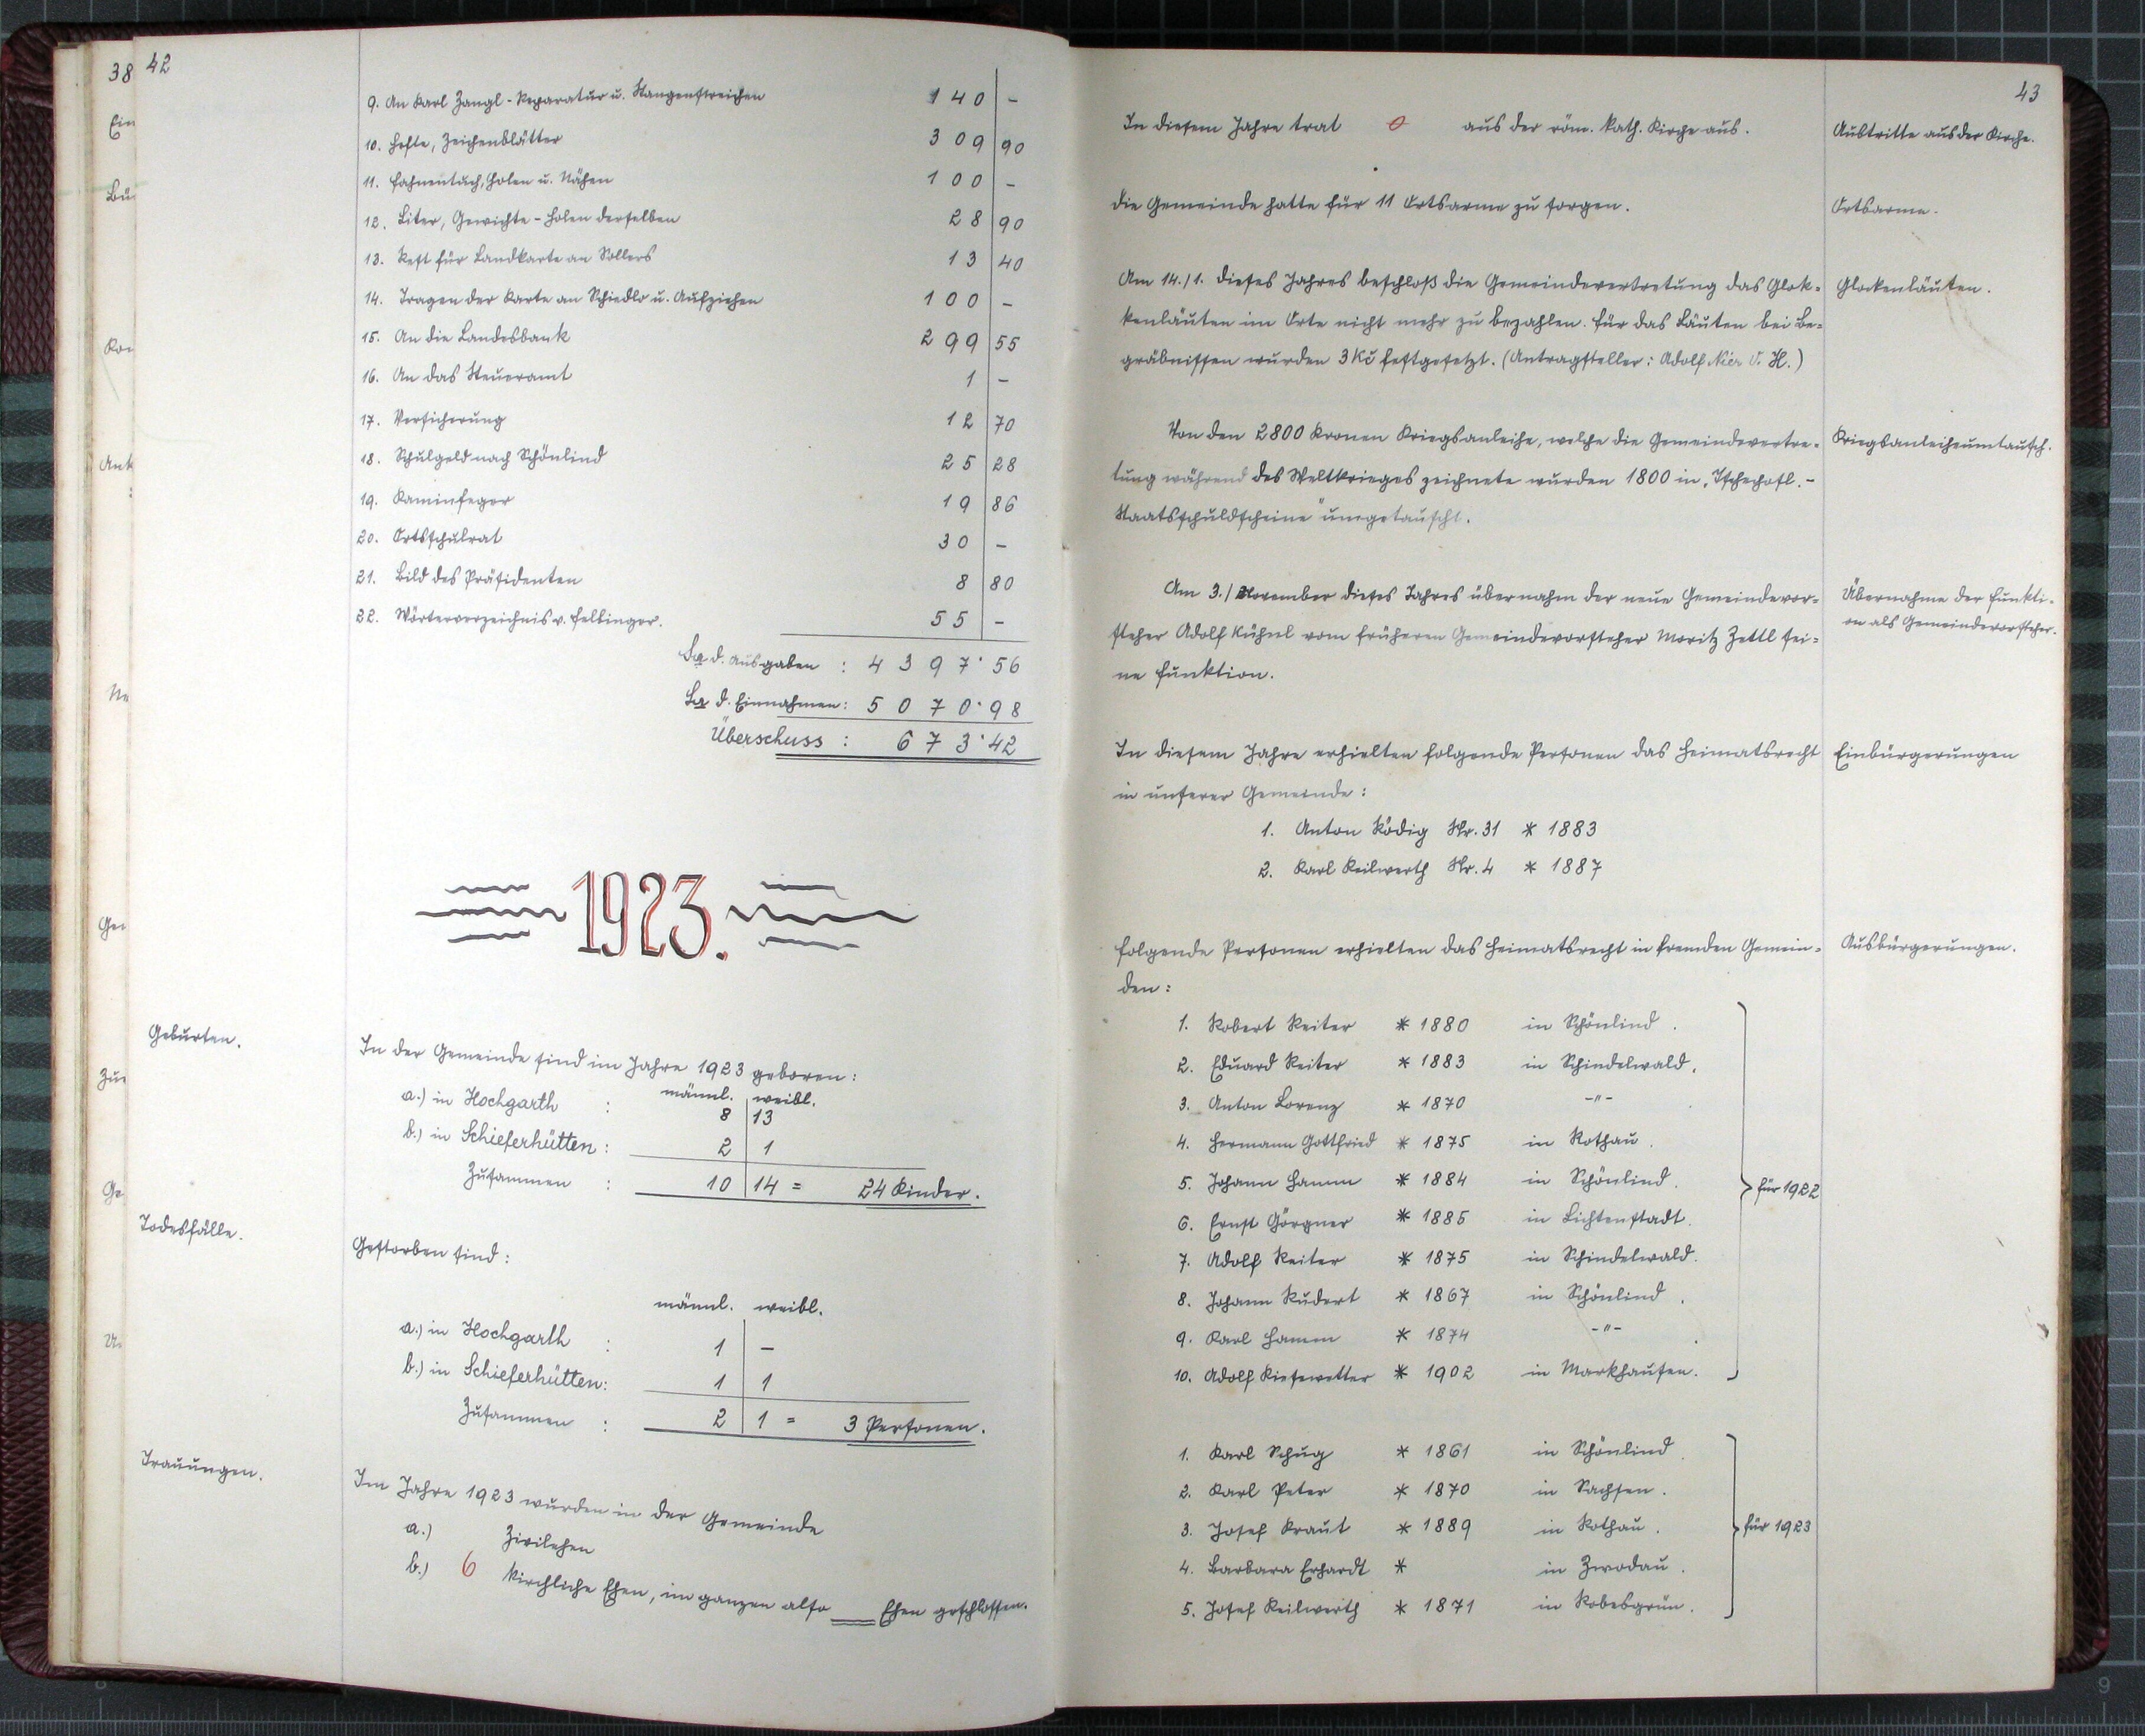 38
42
9. An Karl Zangl - Reparatur u. Stangenstreichen 140 -
10. Hefte, Zeichenblätter 309 90
11. Fahnentuch, Holen u. Nähen 100 -
12. Liter, Gewichte - Holen derselben 28 90
13. Rest für Landkarte an Sollers 13 40
14. Tragen der Karte an Schiedlo u. Aufziehen 100 -
15. An die Landesbank 299 55
16. An das Steueramt 1 -
17. Versicherung 12 70
18. Schulgeld nach Schönlind 25 28
19. Kaminfeger 19 86
20. Ortsschulrat 30 -
21. Bild des Präsidenten 8 80
22. Wörterverzeichnis v. Felbinger. 55 -
Sa d. Ausgaben : 4397·56
Sa d. Einnahmen : 5070·98
Überschuss : 673·42
1923.
Geburten.
In der Gemeinde sind im Jahre 1923 geboren:
männl. weibl.
a.) in Hochgarth : 8 13
b.) in Schieferhütten : 2 1
Zusammen : 10 14 = 24 Kinder.
Todesfälle.
Gestorben sind:
männl. weibl.
a.) in Hochgarth : 1 -
b.) in Schieferhütten: 1 1
Zusammen : 2 1 = 3 Personen.
Trauungen.
Im Jahre 1923 wurden in der Gemeinde
a.) Zivilehen
b.) 6 kirchliche Ehen, im ganzen also Ehen geschlossen.
43
In diesem Jahre trat 0 aus der röm. kath. Kirche aus.
Austritte aus der Kirche.
Die Gemeinde hatte für 11 Ortsarme zu sorgen.
Ortsarme.
Am 14./1. dieses Jahres beschloß die Gemeindevertretung das Glok-
Glockenläuten.
kenläuten im Orte nicht mehr zu bezahlen. Für das Läuten bei Be-
gräbnissen wurden 3 Kč festgesetzt. (Antragsteller: Adolf Nier d. H.)
Von den 2800 Kronen Kriegsanleihe, welche die Gemeindevertre-
Kriegsanleiheumtausch.
tung während des Weltkrieges zeichnete wurden 1800 in „Tschechosl.-
Staatsschuldscheine" umgetauscht.
Am 3./November dieses Jahres übernahm der neue Gemeindevor-
Übernahme der Funkti-
on als Gemeindevorsteher.
steher Adolf Kühnl vom früheren Gemeindevorsteher Moritz Zettl sei-
ne Funktion.
In diesem Jahre erhielten folgende Personen das Heimatsrecht
Einbürgerungen
in unserer Gemeinde:
1. Anton Ködig Nr. 31 * 1883
2. Karl Keilwerth Nr. 4 * 1887
Folgende Personen erhielten das Heimatsrecht in fremden Gemein-
Ausbürgerungen.
den:
1. Robert Reiter * 1880 in Schönlind.
2. Eduard Reiter * 1883 in Schindelwald.
3. Anton Lorenz * 1870 -"-
4. Hermann Gottfried * 1875 in Rothau.
5. Johann Hamm * 1884 in Schönlind.
für 1922
6. Ernst Görgner * 1885 in Lichtenstadt.
7. Adolf Reiter * 1875 in Schindelwald.
8. Johann Kudert * 1867 in Schönlind.
9. Karl Hamm * 1874 -"-
10. Adolf Kiesewetter * 1902 in Markhausen.
1. Karl Schug * 1861 in Schönlind.
2. Karl Peter * 1870 in Sachsen.
3. Josef Kraut * 1889 in Rothau.
für 1923
4. Barbara Erhardt * in Zwodau.
5. Josef Keilwerth * 1871 in Robesgrün.